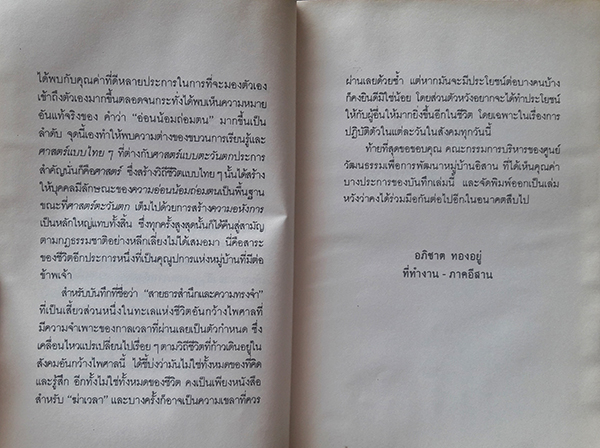 ได้พบกับคุณค่าที่ดีหลายประการในการที่จะมองตัวเอง
เข้าถึงตัวเองมากขึ้นตลอดจนกระทั่งได้พบเห็นความหมาย
อันแท้จริงของ คำว่า "อ่อนน้อมถ่อมตน" มากขึ้นเป็น
ลำดับ จุดนี้เองทำให้พบความต่างของขบวนการเรียนรู้และ
ศาสตร์แบบไทย ๆ ที่ต่างกับศาสตร์แบบตะวันตกประการ
สำคัญนั้นก็คือศาสตร์ ซึ่งสร้างวิถีชีวิตแบบไทย ๆ นั้นได้สร้าง
ให้บุคคลมีลักษณะของความอ่อนน้อมถ่อมตนเป็นพื้นฐาน
ขณะที่ศาสตร์ตะวันตก เติมไปด้วยการสร้างความอหังการ
เป็นหลักใหญ่แทบทั้งสิ้น ซึ่งทุกครั้งสูงสุดนั้นก็ได้คืนสู่สามัญ
ตามกฎธรรมชาติอย่างหลีกเลี่ยงไม่ได้เสมอมา นี่คือสาระ
ของชีวิตอีกประการหนึ่งที่เป็นคุณูปการแห่งหมู่บ้านที่มีต่อ
ข้าพเจ้า
สำหรับบันทึกที่ชื่อว่า "สายธารสำนึกและความทรงจำ"
ที่เป็นเสี้ยวส่วนหนึ่งในทะเลแห่งชีวิตอันกว้างไพศาลที่
มีความจำเพาะของกาลเวลาที่ผ่านเลยเป็นตัวกำหนด ซึ่ง
เคลื่อนไหวแปรเปลี่ยนไปเรื่อย ๆ ตามวิถีชีวิตที่ก้าวเดินอยู่ใน
สังคมอันกว้างไพศาลนี้ ได้ชี้บ่งว่ามันไม่ใช่ทั้งหมดของที่คิด
และรู้สึก อีกทั้งไม่ใช่ทั้งหมดของชีวิต คงเป็นเพียงหนังสือ
สำหรับ "ฆ่าเวลา" และบางครั้งก็อาจเป็นความเขลาที่ควร
ผ่านเลยด้วยซ้ำ แต่หากมันจะมีประโยชน์ต่อบางคนบ้าง
ก็คงยินดีมิใช่น้อย โดยส่วนตัวหวังอยากจะได้ทำประโยชน์
ให้กับผู้อื่นให้มากยิ่งขึ้นอีกในชีวิต โดยเฉพาะในเรื่องการ
ปฏิบัติตัวในแต่ละวันในสังคมทุกวันนี้
ท้ายที่สุดขอขอบคุณ คณะกรรมการบริหารของศูนย์
วัฒนธรรมเพื่อการพัฒนาหมู่บ้านอีสาน ที่ได้เห็นคุณค่า
บางประการของบันทึกเล่มนี้ และจัดพิมพ์ออกเป็นเล่ม
หวังว่าคงได้ร่วมมือกันต่อไปอีกในอนาคตสืบไป
อภิชาต ทองอยู่
ที่ทำงาน - ภาคอีสาน